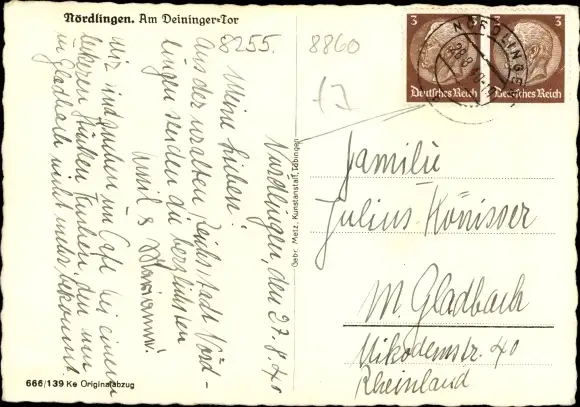 Nördlingen. Am Deininger-Tor
8255.
8860
Nördlingen, den 27.8.40
Meine Lieben!
Aus der uralten Reichsstadt Nörd-
lingen senden die herzlichsten
Emil & Marianne.
Wir sind im Café bei einem
leckeren Stücken Kuchen, den man
in Gladbach nicht mehr bekommt.
666/139 Ke Originalabzug
Gebr. Metz, Kunstanstalt, Tübingen
3
3
Deutsches Reich
Deutsches Reich
NÖRDLINGEN
28.8.40
Familie
Julius Könisser
M. Gladbach
Nikodemstr. 40
Rheinland